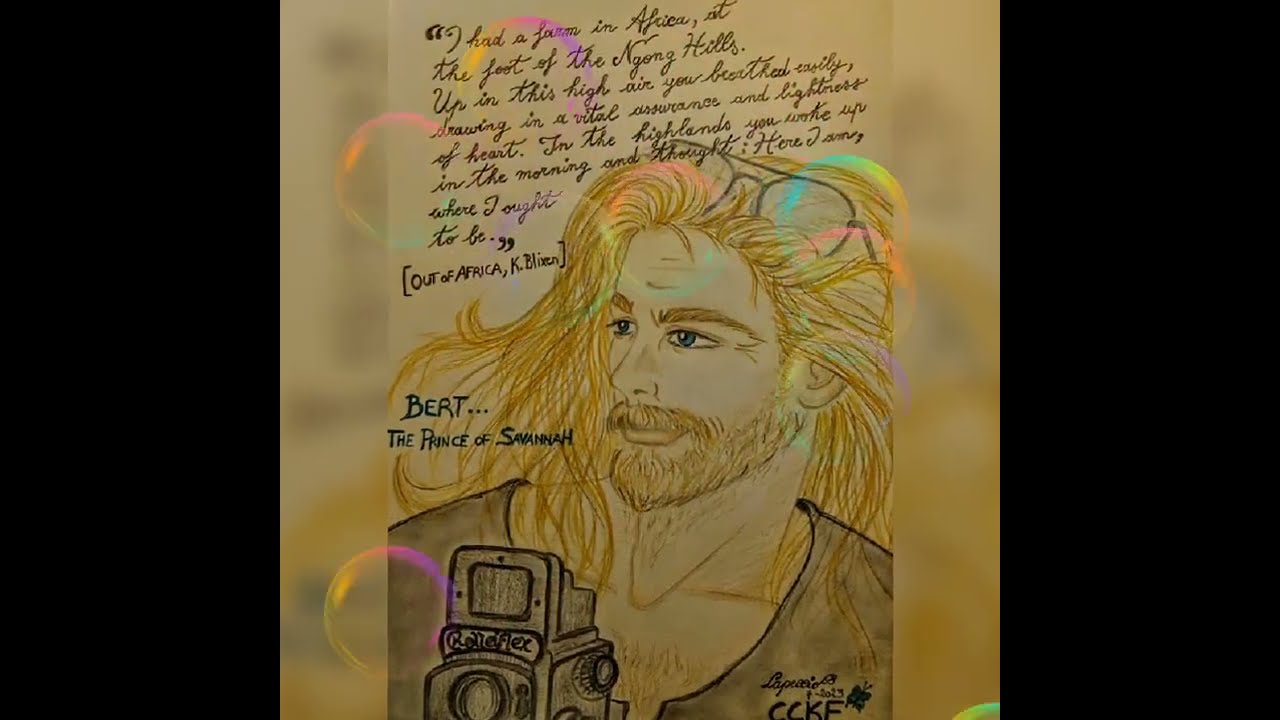 “I had a farm in Africa, at
the foot of the Ngong Hills.
Up in this high air you breathed easily,
drawing in a vital assurance and lightness
of heart. In the highlands you woke up
in the morning and thought: Here I am,
where I ought
to be.„
[OUT OF AFRICA, K. Blixen]
BERT...
THE PRINCE OF SAVANNAH
Rolleiflex
-2023
CCKF